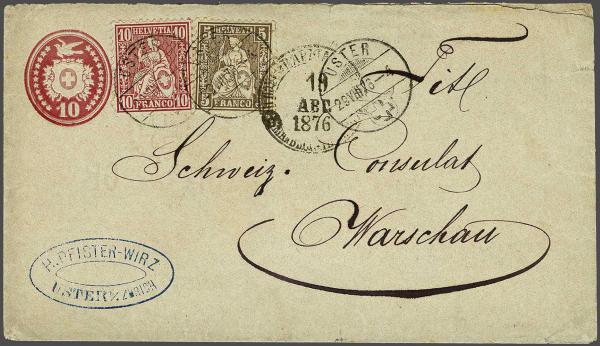 10
10 HELVETIA 10
10 FRANCO 10
5 HELVETIA 5
5 FRANCO 5
USTER
19
АВГ
1876
USTER
Titl
Schweiz. Consulat
Warschau
H. PFISTER-WIRZ
USTER ZÜRICH